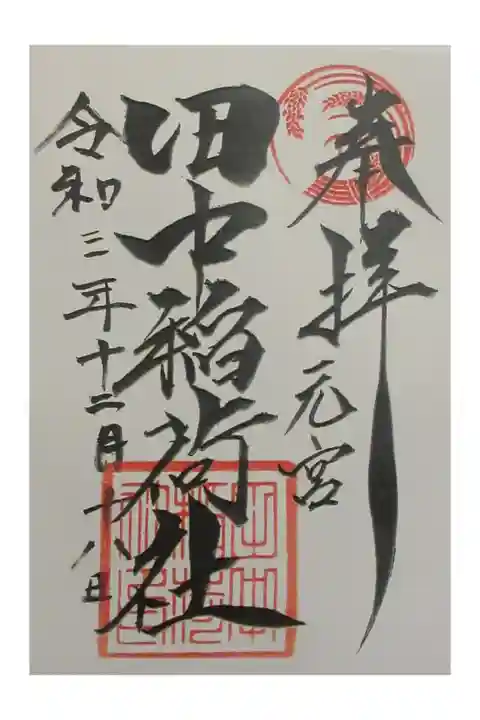 奉拝
元宮
田中稲荷社
令和三年十二月十八日